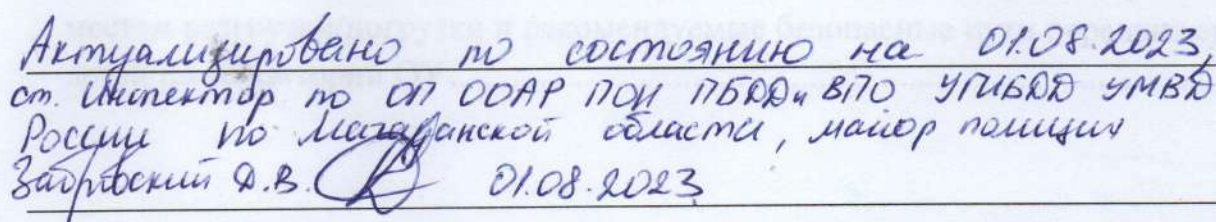 Актуализировано по состоянию на 01.08.2023,
ст. инспектор по ОП ООАР ПОН ПБДД и ВПО УГИБДД УМВД
России по Магаданской области, майор полиции
Д.В. 01.08.2023